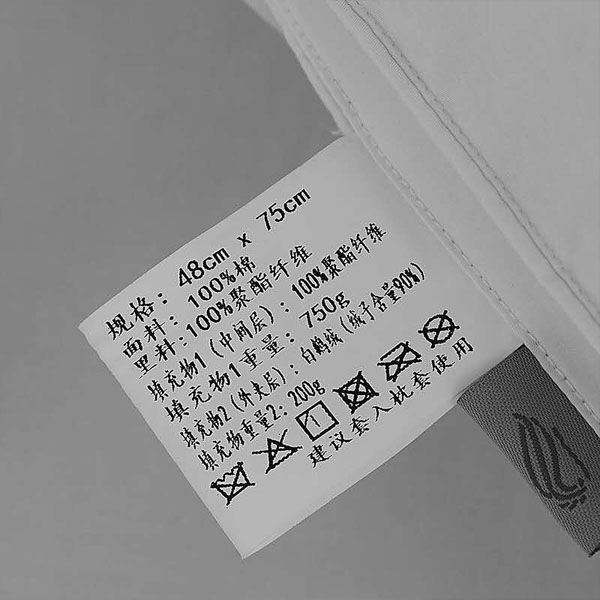 规格：48cm x 75cm
面料：100%棉
里料：100%聚酯纤维
填充物1（中间层）：100%聚酯纤维
填充物1重量：750g
填充物2（外夹层）：白鹅绒（绒子含量90%）
填充物重量2：200g
1
建议套入枕套使用